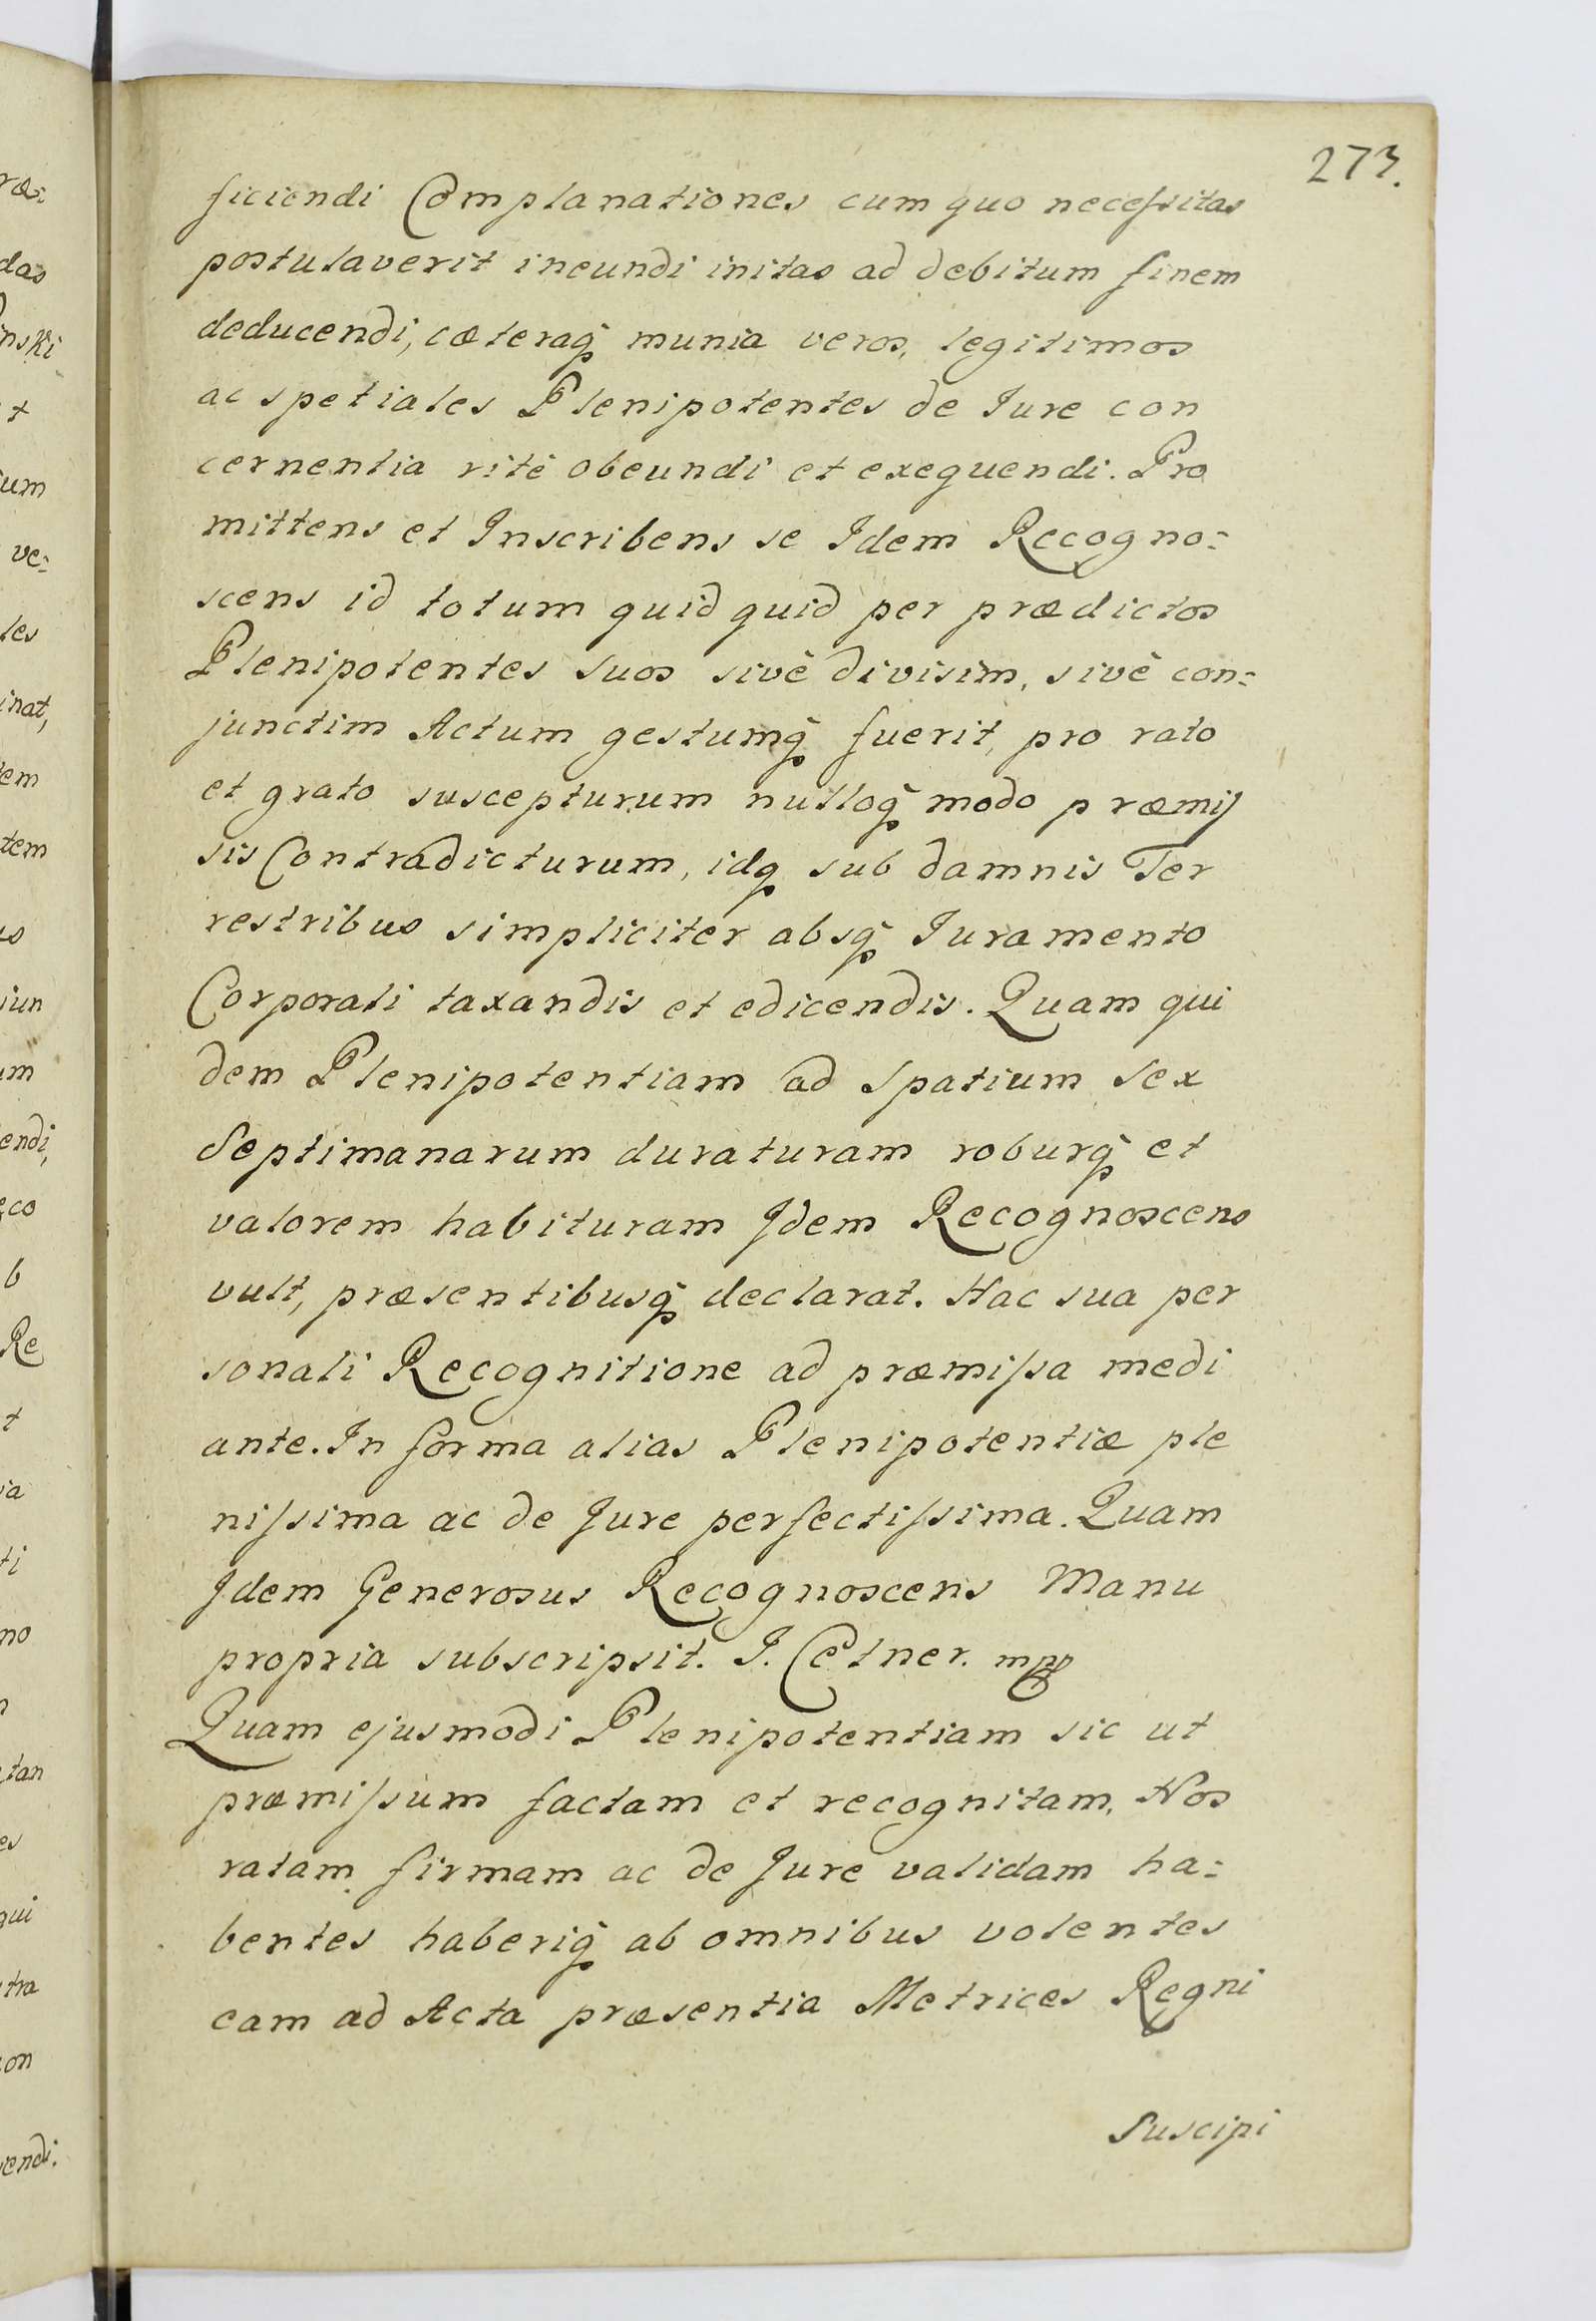 273.
ficiendi Complanationes cum quo neceſsitas
postulaverit ineundi initas ad debitum finem
deducendi, cæteraq̃ munia veros, legitimos
ac spetiales Plenipotentes de Iure con
cernentia ritè obeundi et exequendi. Pro
mittens et Inscribens se Idem Recogno:
scens id totum quid quid per prædictos
Plenipotentes suos sivè divisim, sivè con:
junctim Actum gestumq̃ fuerit, pro rato
et grato suscepturum nulloq̃ modo præmiſ
sis Contradicturum, idq sub damnis Ter
restribus simpliciter absq̃ Iuramento
Corporali taxandis et edicendis. Quam qui
dem Plenipotentiam ad spatium sex
Septimanarum duraturam roburq̃ et
valorem habituram Idem Recognoscens
vult, præsentibusq̃ declarat. Hac sua per
sonali Recognitione ad præmiſsa medi
ante. In forma alias Plenipotentiæ ple
niſsima ac de Jure perfectiſsima. Quam
Idem Generosus Recognoscens Manu
propria subscripsit. I. Cetner. mpp
Quam ejusmodi Plenipotentiam sic ut
præmiſsum factam et recognitam, Nos
ratam firmam ac de Jure validam ha:
bentes haberiq̃ ab omnibus volentes
eam ad Acta præsentia Metrices Regni
Suscipi